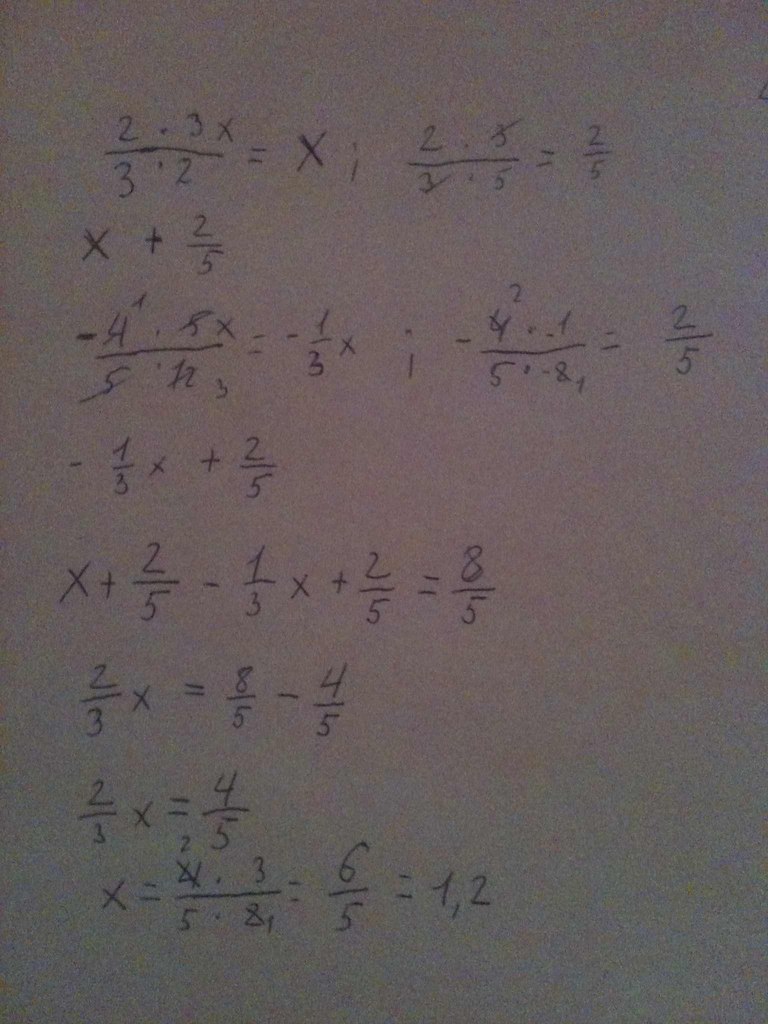 2 · 3x / 3 · 2 = x ; 2 · 3 / 3 · 5 = 2/5
x + 2/5
- 4 1 · 5x / 5 · 12 3 = - 1/3 x ; - 4 2 · -1 / 5 · -2 1 = 2/5
- 1/3 x + 2/5
x + 2/5 - 1/3 x + 2/5 = 8/5
2/3 x = 8/5 - 4/5
2/3 x = 4/5
x = 4 2 · 3 / 5 · 2 1 = 6/5 = 1,2